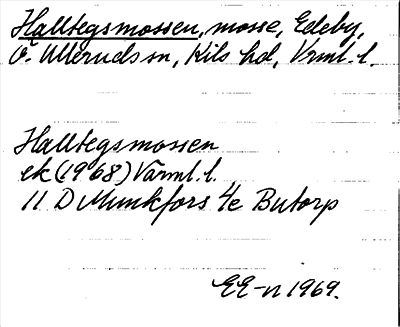 Halltegsmossen, mosse, Edeby,
Ö. Ullerud sn, Kils hd, Vrml. l.
Halltegsmossen
ek (1968) Värml. l.
11 D Munkfors 4e Butorp
EE-n 1969.